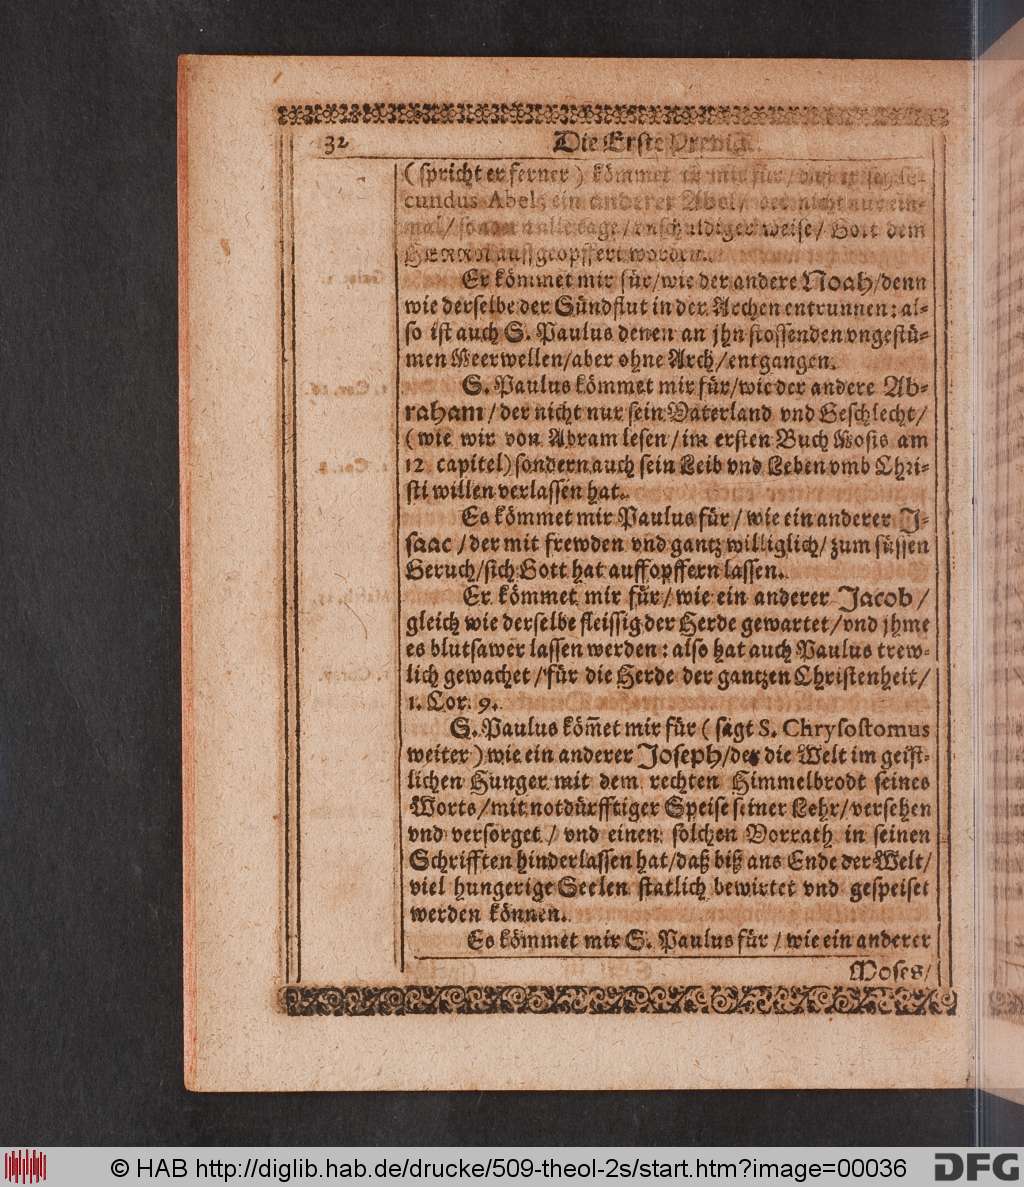 32 Die Erste Predigt.
(spricht er ferner) kömmet er mir für/ daß er sey se-
cundus Abel, ein anderer Abel/ der nicht nur ein-
mal/ sondern alle tage/ vnschuldiger weise/ Gott dem
HERRN auffgeopffert worden.
Er kömmet mir für/wie der andere Noah/denn
wie derselbe der Sündflut in der Archen entrunnen: al-
so ist auch S. Paulus denen an jhn stossenden vngestü-
men Meerwellen/aber ohne Arch/entgangen.
S. Paulus kömmet mir für/wie der andere Ab-
raham/der nicht nur sein Vaterland vnd Geschlecht/
(wie wir von Abram lesen/im ersten Buch Mosis am
12 capitel) sondern auch sein Leib vnd Leben vmb Chri-
sti willen verlassen hat.
Es kömmet mir Paulus für/ wie ein anderer J-
saac/der mit frewden vnd gantz williglich/ zum süssen
Geruch/sich Gott hat auffopffern lassen.
Er kömmet mir für/wie ein anderer Jacob/
gleich wie derselbe fleissig der Herde gewartet/vnd jhme
es blutsawer lassen werden: also hat auch Paulus trew-
lich gewachet/für die Herde der gantzen Christenheit/
1. Cor. 9.
S. Paulus köm̃et mir für (sagt S. Chrysostomus
weiter) wie ein anderer Joseph/der die Welt im geist-
lichen Hunger mit dem rechten Himmelbrodt seines
Worts/mit notdürfftiger Speise seiner Lehr/versehen
vnd versorget/ vnd einen solchen Vorrath in seinen
Schrifften hinderlassen hat/daß biß ans Ende der Welt/
viel hungerige Seelen statlich bewirtet vnd gespeiset
werden können.
Es kömmet mir S. Paulus für/ wie ein anderer
Moses/
© HAB http://diglib.hab.de/drucke/509-theol-2s/start.htm?image=00036 DFG